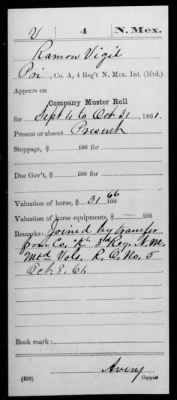 V 4 N. Mex.
Ramon Vigil
Pri, Co. A, 4 Reg't N. Mex. Int. (Mtd.)
Appears on
Company Muster Roll
for Sept 4 to Oct 31, 1861.
Present or absent Present
Stoppage, $ 100 for
Due Gov't, $ 100 for
Valuation of horse, $ 31 66/100
Valuation of horse equipments, $ 100
Remarks: Joined by transfer
from Co. "K" 3d Reg. N.M.
Mtd Vols. R.O. No. 5
Oct 8. 61
Book mark:
Avery
(858) Copyist